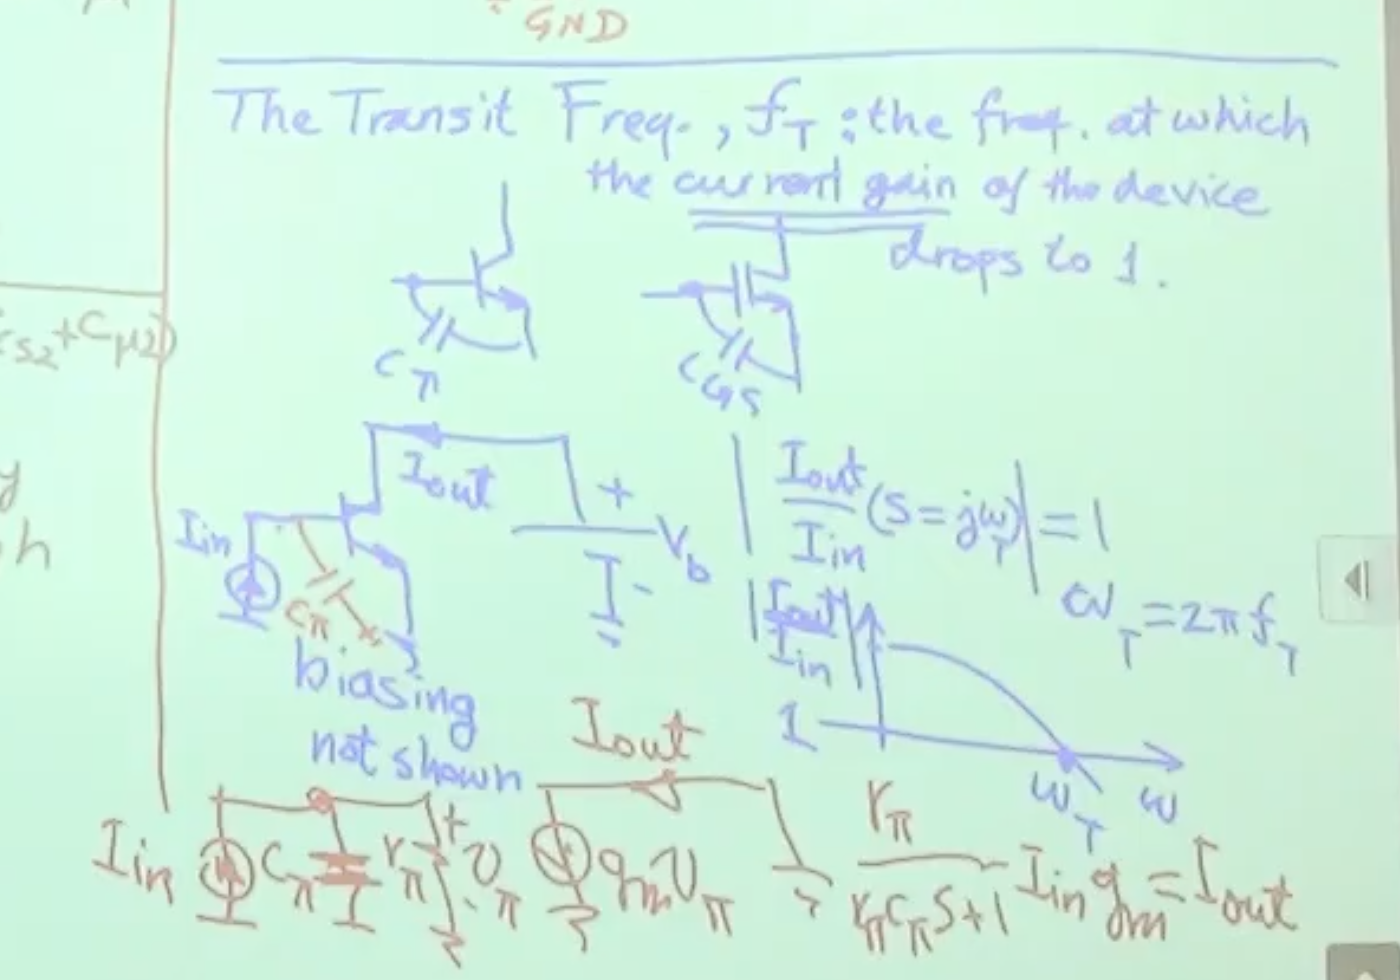 GND
The Transit Freq., fT : the freq. at which
the current gain of the device
drops to 1.
Cπ
CGS
(s2+Cμ2)
y
h
Iout
Iin
+
Vb
-
Cπ
biasing
not shown
|Iout/Iin (s=jωT)| = 1
ωT = 2π fT
|Iout/Iin|
1
ωT
ω
Iout
Iin
Cπ
rπ
+
vπ
-
gm vπ
rπ/(rπCπS+1) Iin gm = Iout